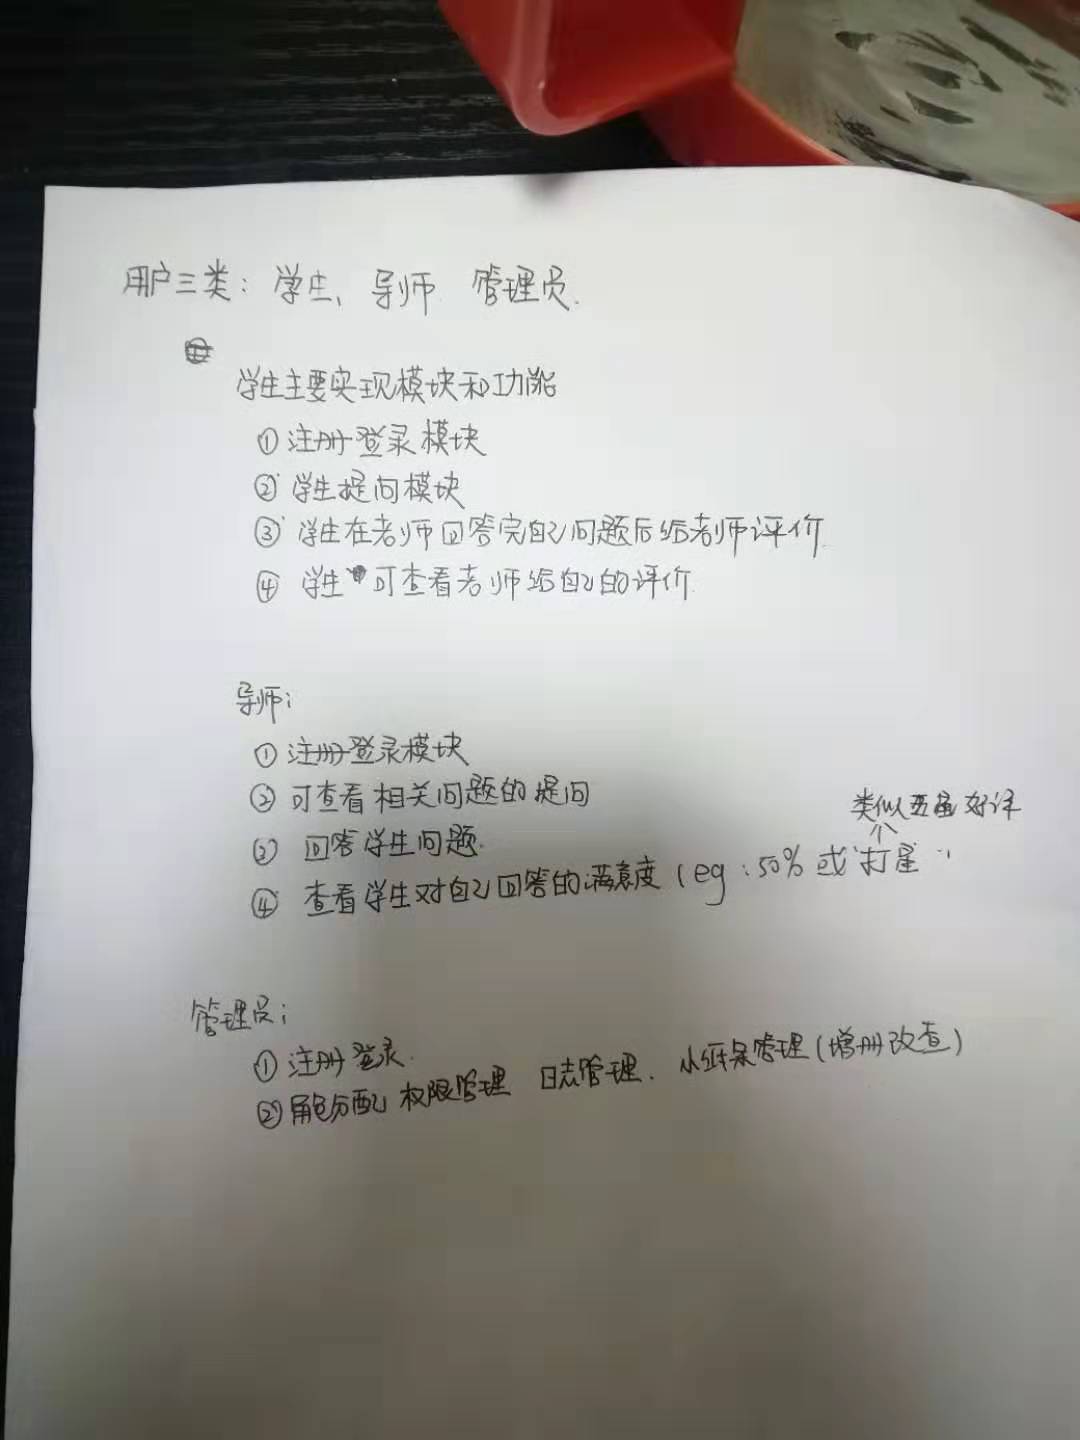 用户三类：学生、导师 管理员.
学生主要实现模块和功能
① 注册登录模块
② 学生提问模块
③ 学生在老师回答完自己问题后给老师评价.
④ 学生 可查看老师给自己的评价.
导师：
① 注册登录模块
② 可查看相关问题的提问
③ 回答学生问题.
类似五星好评
④ 查看学生对自己回答的满意度（eg：50% 或"打星"
管理员：
① 注册登录.
② 角色分配 权限管理 日志管理. 小纸条管理（增册改查）